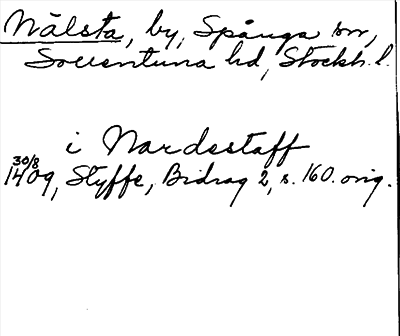 Nälsta, by, Spånga sn,
Sollentuna hd, Stockh. l.
i Nardsstaff
30/8
1409, Styffe, Bidrag 2, s. 160. orig.